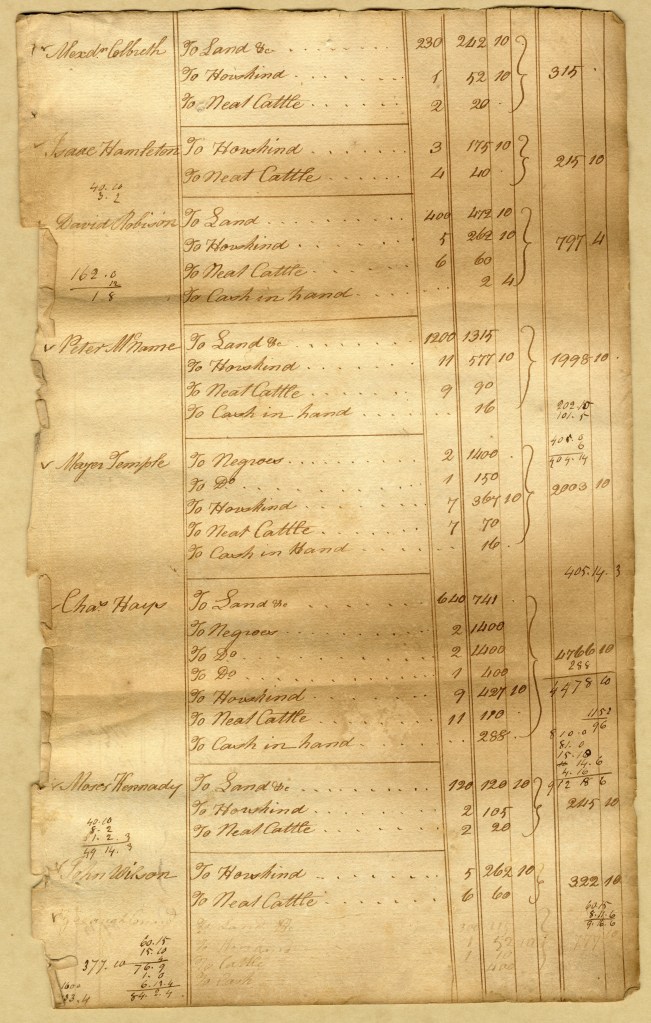 Alexdr Colbreth To Land &c 230 242 10
To Horskind 1 52 10 315
To Neat Cattle 2 20
Isaac Hamleton To Horskind 3 175 10
To Neat Cattle 4 40 215 10
40.10
8.2
David Robison To Land 400 472 10
To Horskind 5 262 10
To Neat Cattle 6 60 797 4
To Cash in hand 2 4
162.0
12
1 8
Peter McName To Land &c 1200 1315
To Horskind 11 577 10 1998 10
To Neat Cattle 9 90
To Cash in hand 16
202.10
101.5
405.0
404.14
Mayer Temple To Negroes 2 1400
To Do 1 150
To Horskind 7 367 10 2003 10
To Neat Cattle 7 70
To Cash in Hand 16
405.14.3
Chas Hays To Land &c 640 741
To Negroes 2 1400
To Do 2 1400 4766 10
To Do 1 400 288
To Horskind 9 427 10 4478 10
To Neat Cattle 11 110
To Cash in hand 288
1152
96
810.0
81.0
15.18
14.6
4.10
912 18 6
Moses Kennady To Land &c 120 120 10
To Horskind 2 105 245 10
To Neat Cattle 2 20
40.10
8.2
1.2.3
49.14.3
John Wilson To Horskind 5 262 10
To Neat Cattle 6 60 322 10
60.15
8.11.6
9.16.6
60.15
15.10
377.10 76.9
1.0
1000 6.13.4
33.4 84.2.4
To Cattle